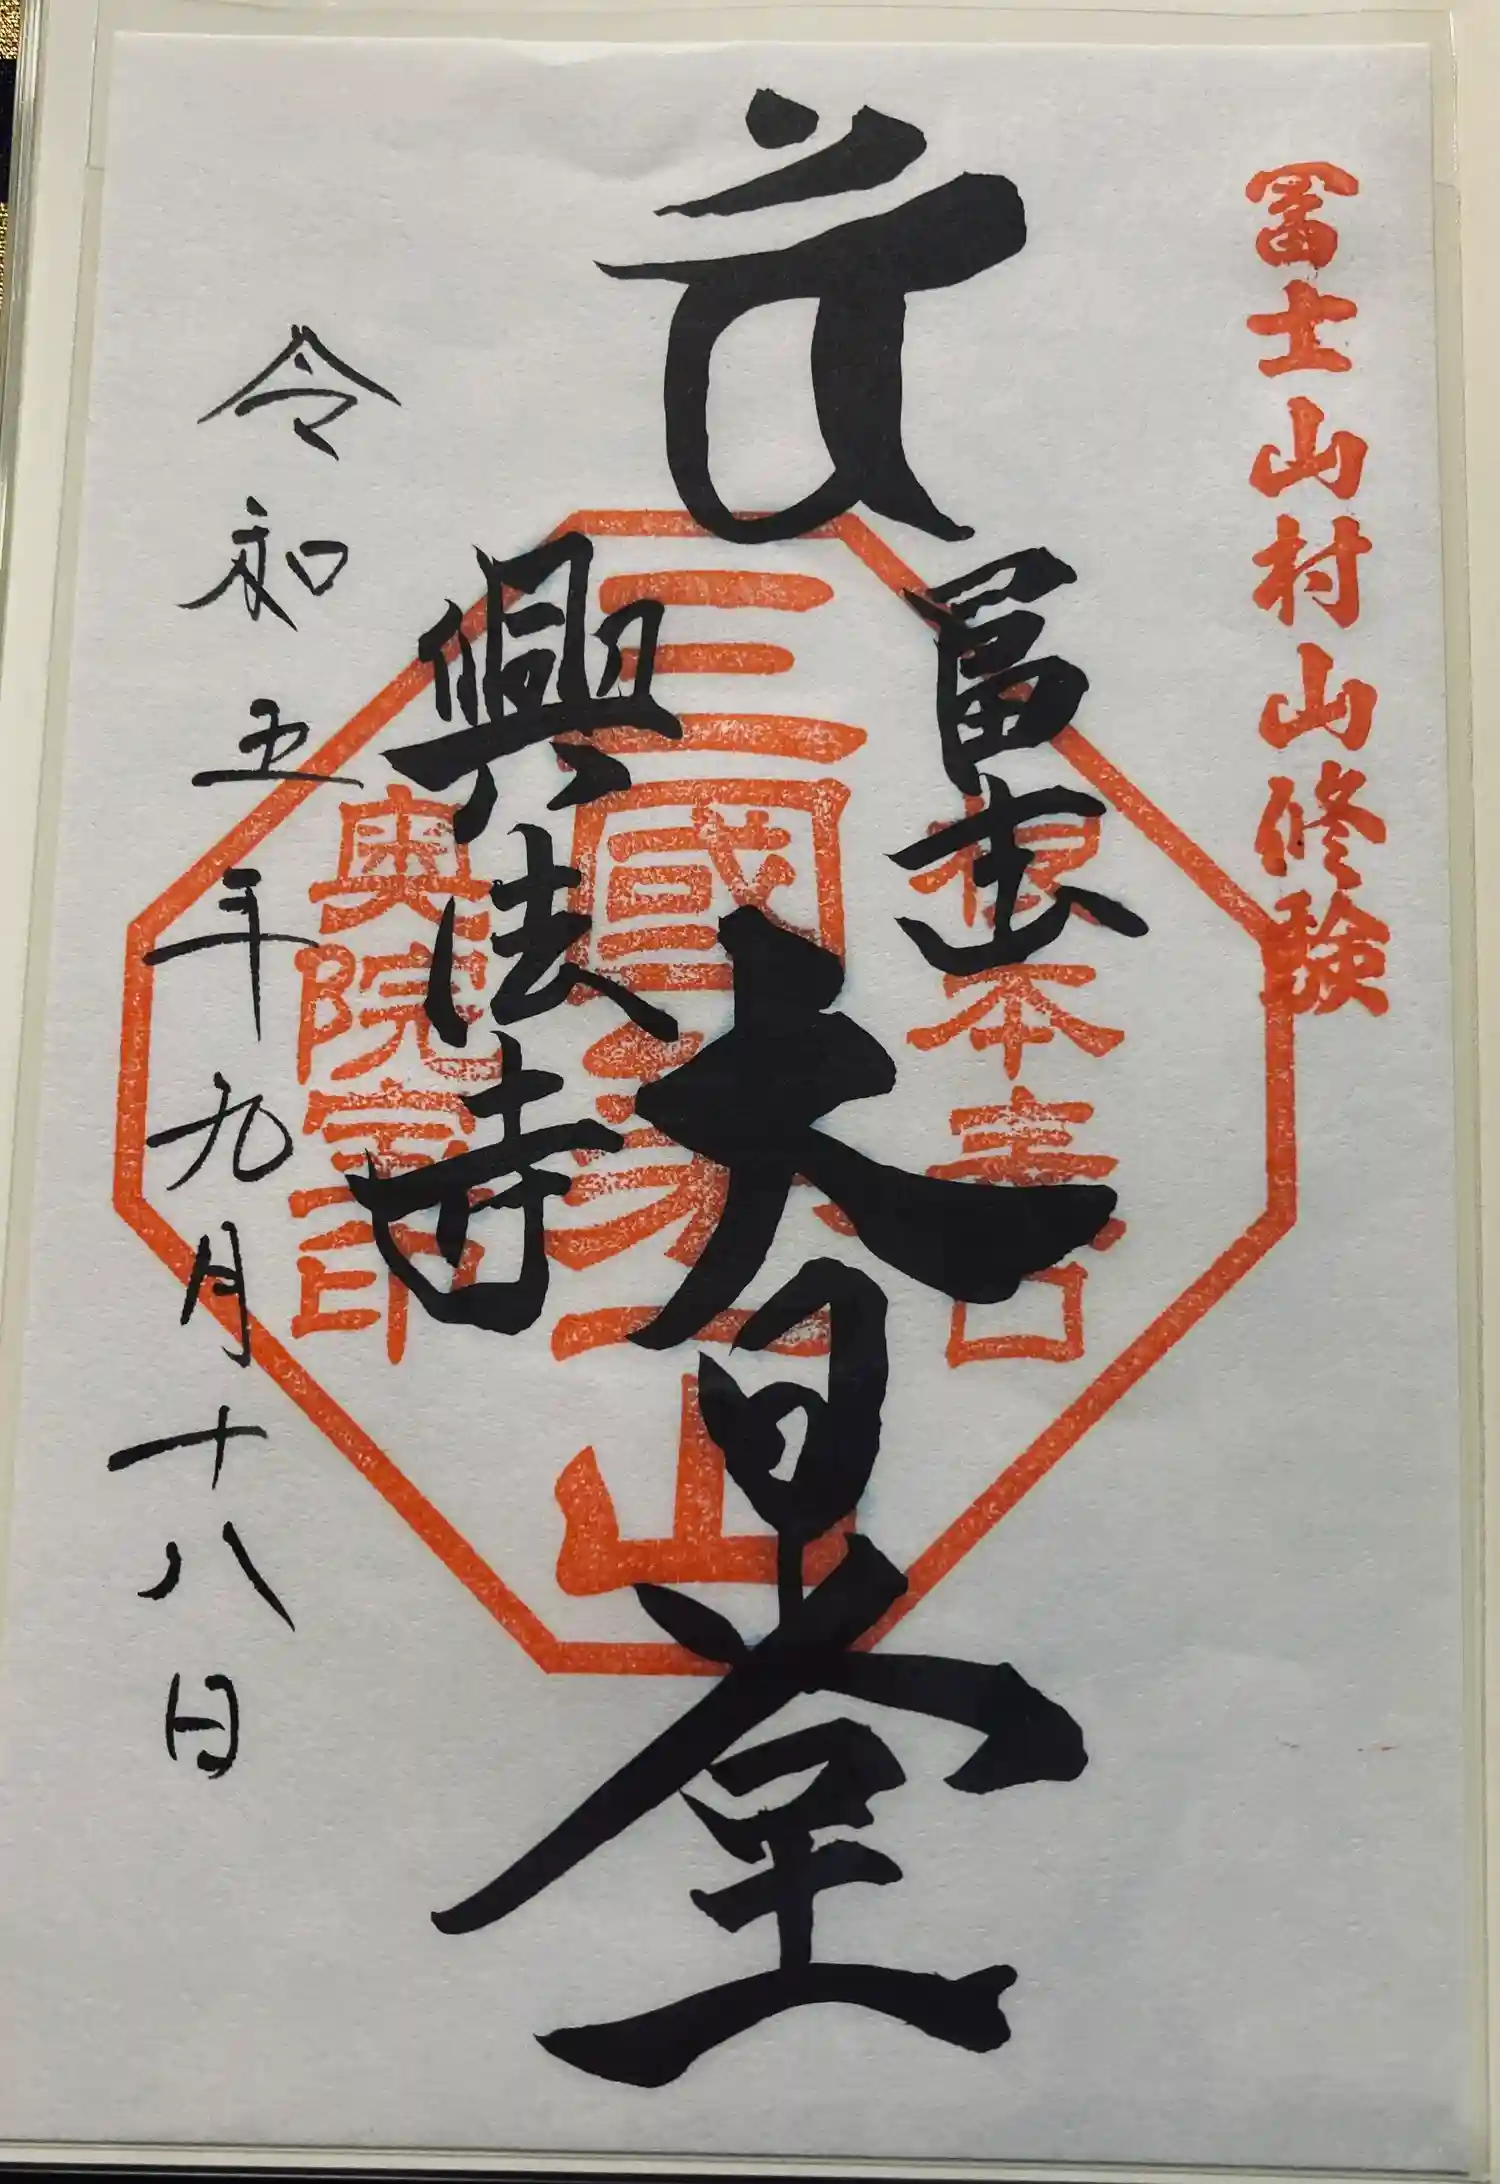 冨士山村山修験
冨士
大日堂
興法寺
根本表口
三國第一山
奥院宝印
令和五年九月十八日